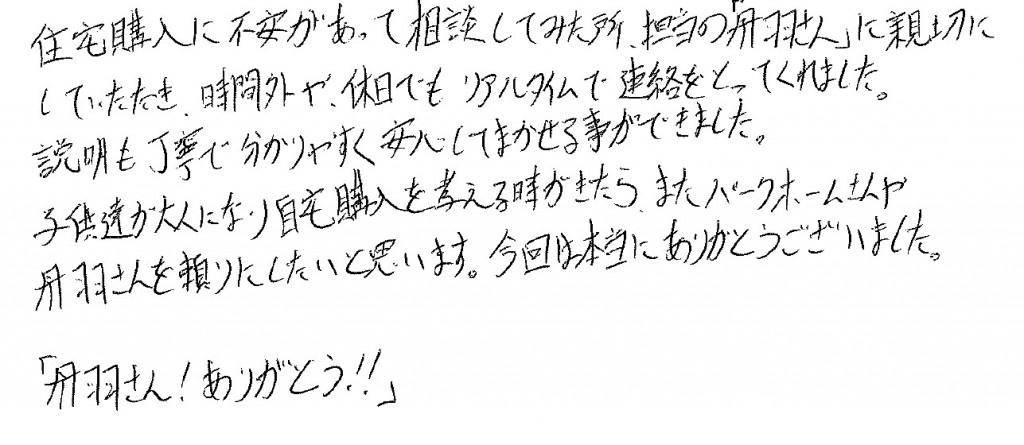 住宅購入に不安があって相談してみた所、担当の「丹羽さん」に親切に
していただき、時間外や、休日でも リアルタイムで連絡をとってくれました。
説明も丁寧で分かりやすく安心してまかせる事ができました。
子供達が大人になり自宅購入を考える時がきたら、またパークホームさんや
丹羽さんを頼りにしたいと思います。今回は本当にありがとうございました。
「丹羽さん!ありがとう!!」